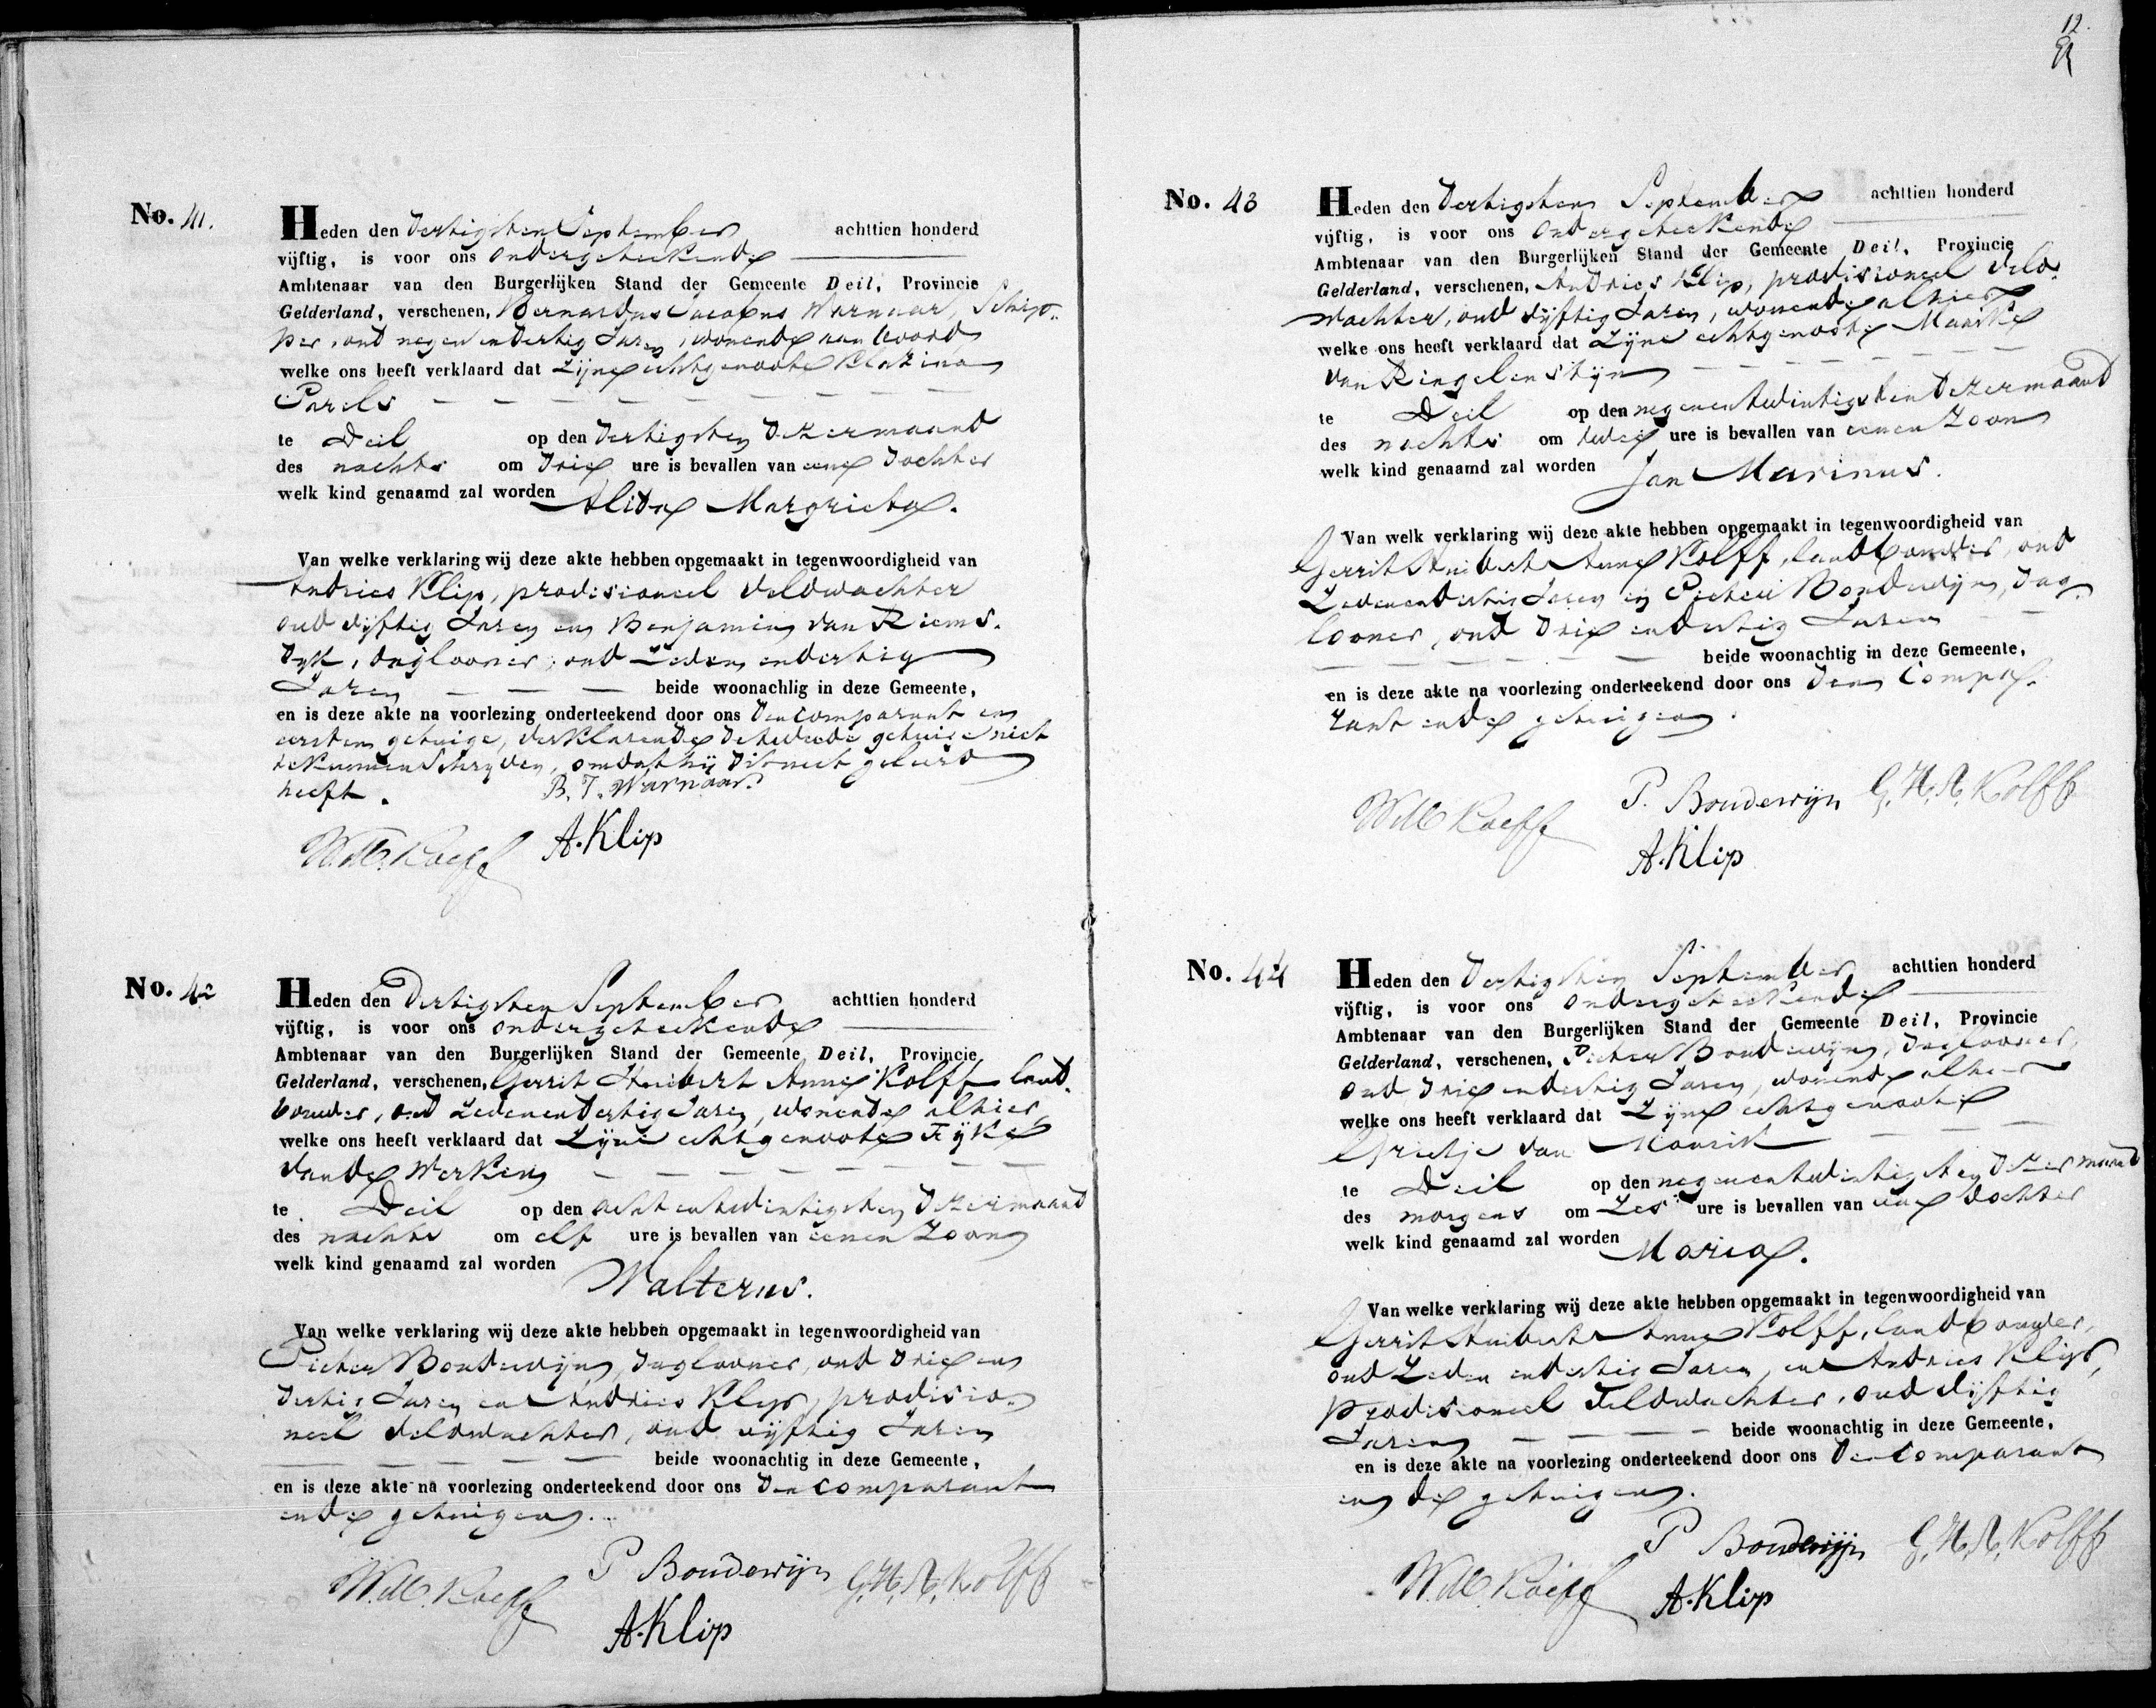 No. 41.
Heden den Dertigsten September achttien honderd
vijftig, is voor ons ondergeteekende
Ambtenaar van den Burgerlijken Stand der Gemeente Deil, Provincie
Gelderland, verschenen, Bernardus Jacobus Warnaar, Schip-
per, oud negen en dertig Jaren, wonende aan boord
welke ons heeft verklaard dat Zijne echtgenoote Klazina
Parels
te Deil op den dertigsten dezer maand
des nachts om drie ure is bevallen van eene dochter
welk kind genaamd zal worden
Alida Margrieta.
Van welke verklaring wij deze akte hebben opgemaakt in tegenwoordigheid van
Andries Klip, provisioneel veldwachter
oud vijftig Jaren en Benjamin van Riems-
dyk, daglooner, oud Zeven en dertig
Jaren beide woonachtig in deze Gemeente,
en is deze akte na voorlezing onderteekend door ons den comparant en
eersten getuige, verklarende de tweede getuige niet
te kunnen Schryven, omdat hij dit niet geleerd
heeft. B. J. Warnaar.
A. Klip
No. 42
Heden den Dertigsten September achttien honderd
vijftig, is voor ons ondergeteekende
Ambtenaar van den Burgerlijken Stand der Gemeente Deil, Provincie
Gelderland, verschenen, Gerrit Huibert Anne Kolff land-
bouwer, oud Zeven en dertig Jaren, wonende alhier
welke ons heeft verklaard dat Zijne echtgenoote Fijke
van de Werken
te Deil op den acht en twintigsten dezer maand
des nachts om elf ure is bevallen van eenen Zoon
welk kind genaamd zal worden
Walterus.
Van welke verklaring wij deze akte hebben opgemaakt in tegenwoordigheid van
Pieter Boudewijn, daglooner, oud drie en
dertig Jaren en Andries Klip, provisio-
neel veldwachter, oud vijftig Jaren
beide woonachtig in deze Gemeente,
en is deze akte na voorlezing onderteekend door ons den comparant
en de getuigen.
P Boudewijn G. H. A. Kolff
A. Klip
12.
No. 43
Heden den Dertigsten September achttien honderd
vijftig, is voor ons ondergeteekende
Ambtenaar van den Burgerlijken Stand der Gemeente Deil, Provincie
Gelderland, verschenen, Andries Klip, provisioneel veld-
wachter, oud vijftig Jaren, wonende alhier
welke ons heeft verklaard dat Zijne echtgenoote Maaike
van Ringelenstijn
te Deil op den negenentwintigsten dezer maand
des nachts om twee ure is bevallen van eenen Zoon
welk kind genaamd zal worden
Jan Marinus.
Van welk verklaring wij deze akte hebben opgemaakt in tegenwoordigheid van
Gerrit Huibert Anne Kolff, landbouwer, oud
Zevenendertig Jaren en Pieter Boudewijn, dag-
looner, oud drie en dertig Jaren
beide woonachtig in deze Gemeente,
en is deze akte na voorlezing onderteekend door ons den compa-
rant en de getuigen.
P. Boudewijn G. H. A. Kolff
A. Klip
No. 44
Heden den Dertigsten September achttien honderd
vijftig, is voor ons ondergeteekende
Ambtenaar van den Burgerlijken Stand der Gemeente Deil, Provincie
Gelderland, verschenen, Pieter Boudewijn, daglooner,
oud drie en dertig Jaren, wonende alhier
welke ons heeft verklaard dat Zijne echtgenoote
Grietje van Maurik
te Deil op den negenentwintigsten dezer maand
des morgens om Zes ure is bevallen van eene dochter
welk kind genaamd zal worden
Maria.
Van welke verklaring wij deze akte hebben opgemaakt in tegenwoordigheid van
Gerrit Huibert Anne Kolff, landbouwer,
oud Zeven en dertig Jaren, en Andries Klip,
provisioneel veldwachter, oud vijftig
Jaren beide woonachtig in deze Gemeente,
en is deze akte na voorlezing onderteekend door ons den comparant
en de getuigen.
P Boudewijn G. H. A. Kolff
A. Klip